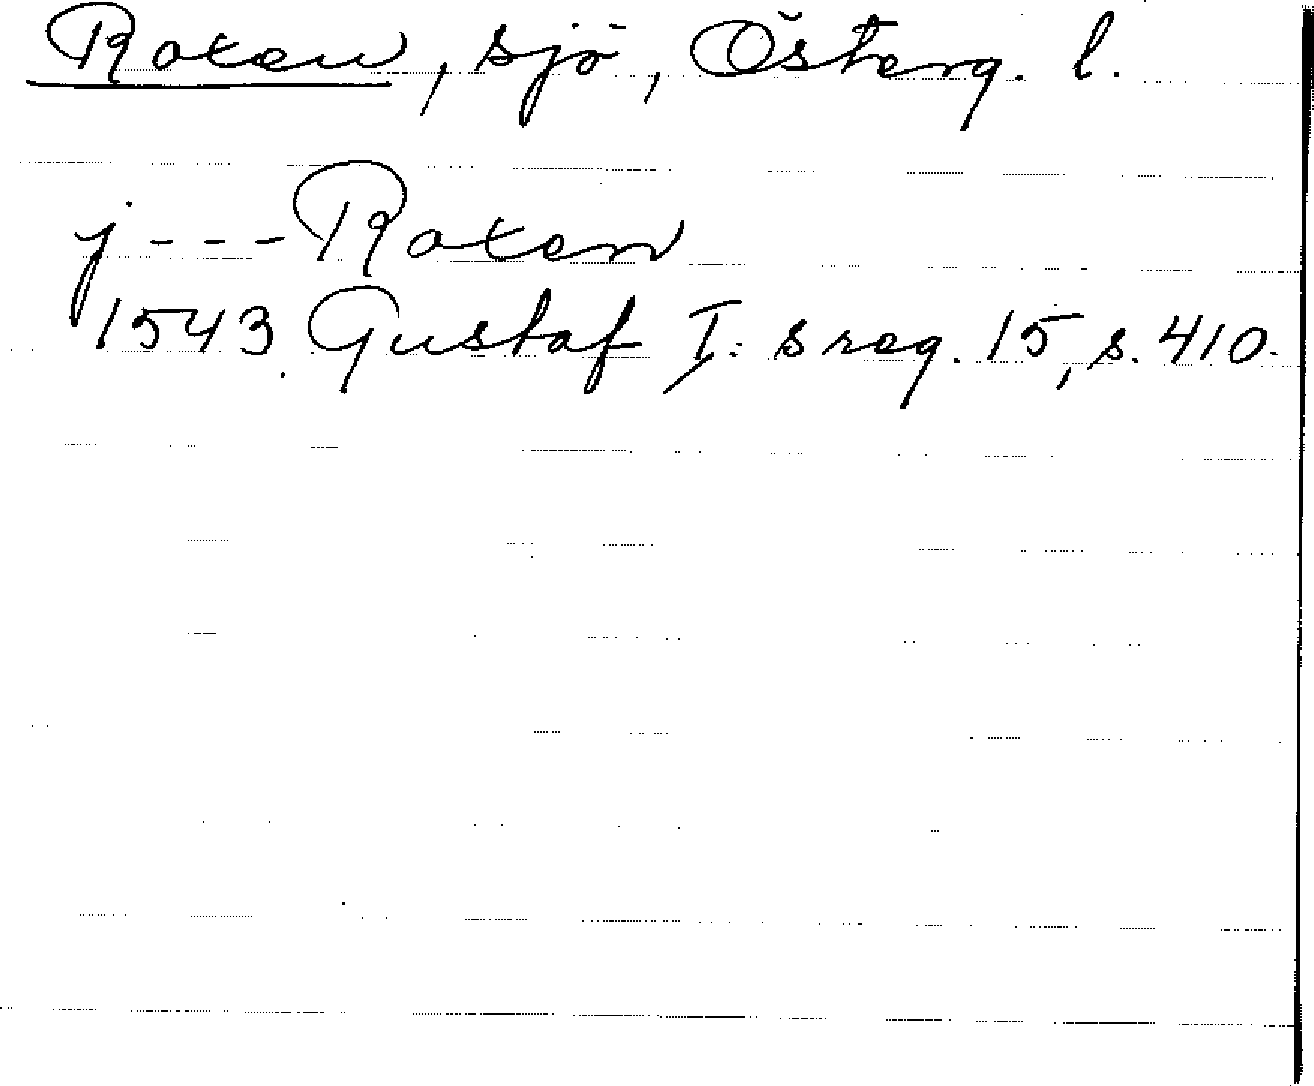 Roxen, sjö, Österg. l.
j --- Roxen
1543 Gustaf I: s reg. 15, s. 410.